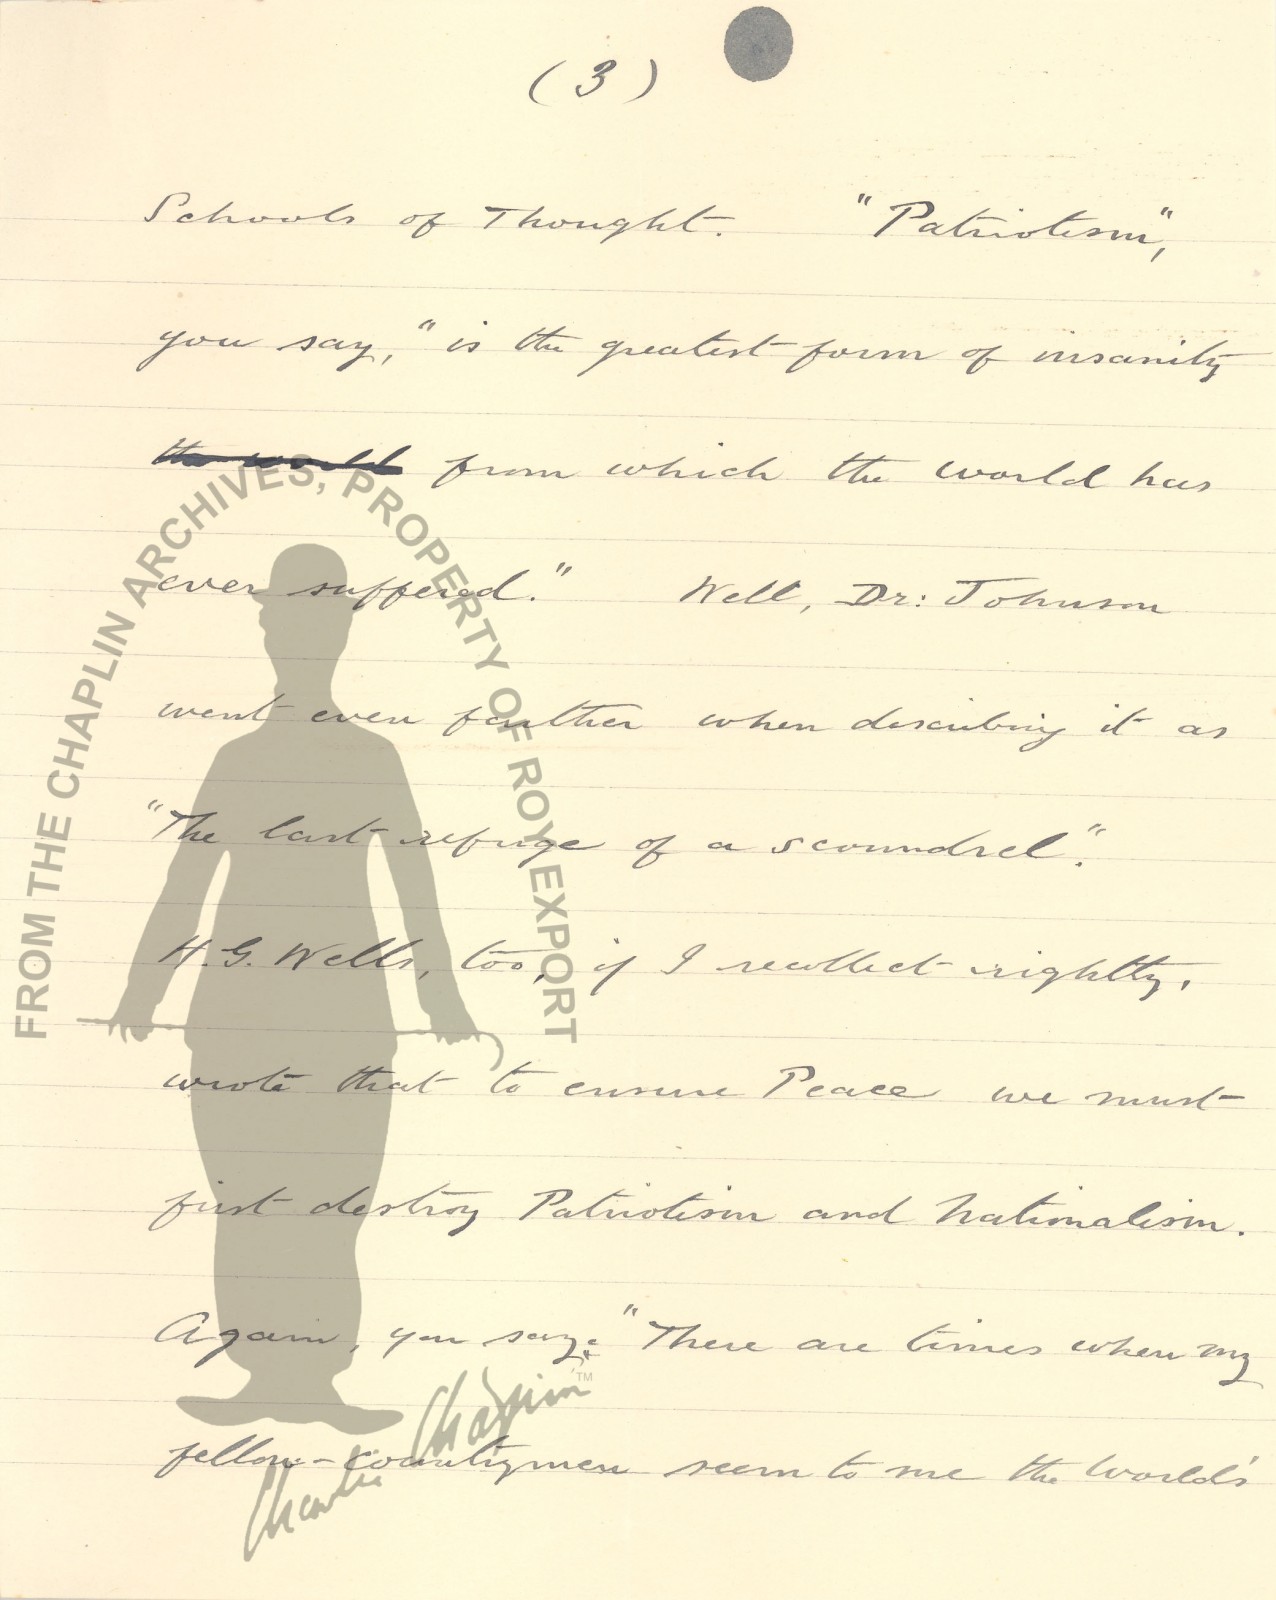 (3)
Schools of Thought. "Patriotism",
you say, "is the greatest form of insanity
the world from which the world has
ever suffered." Well, Dr: Johnson
went even farther when describing it as
"The last refuge of a scoundrel".
H.G. Wells, too, if I recollect rightly,
wrote that to ensure Peace we must
first destroy Patriotism and Nationalism.
Again, you say: "There are times when my
fellow-countrymen seem to me the World's
FROM THE CHAPLIN ARCHIVES, PROPERTY OF ROY EXPORT
Charlie Chaplin™